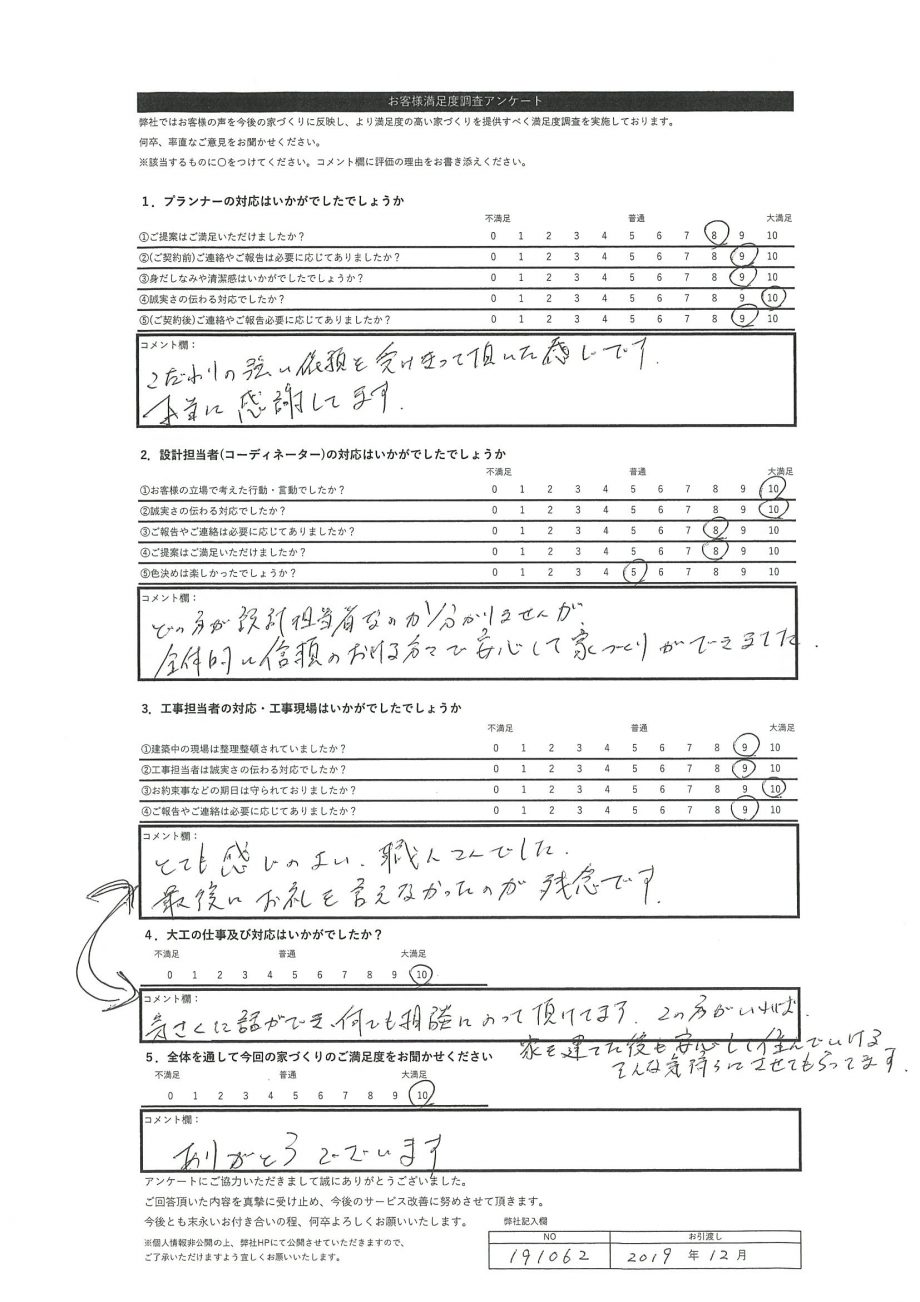 お客様満足度調査アンケート
弊社ではお客様の声を今後の家づくりに反映し、より満足度の高い家づくりを提供すべく満足度調査を実施しております。
何卒、率直なご意見をお聞かせください。
※該当するものに〇をつけてください。コメント欄に評価の理由をお書き添えください。
1．プランナーの対応はいかがでしたでしょうか
不満足 普通 大満足
①ご提案はご満足いただけましたか？ 0 1 2 3 4 5 6 7 8 9 10
②(ご契約前)ご連絡やご報告は必要に応じてありましたか？ 0 1 2 3 4 5 6 7 8 9 10
③身だしなみや清潔感はいかがでしたでしょうか？ 0 1 2 3 4 5 6 7 8 9 10
④誠実さの伝わる対応でしたか？ 0 1 2 3 4 5 6 7 8 9 10
⑤(ご契約後)ご連絡やご報告必要に応じてありましたか？ 0 1 2 3 4 5 6 7 8 9 10
コメント欄：
こだわりの強い依頼を受けきって頂いた感じです.
本当に感謝してます.
2．設計担当者(コーディネーター)の対応はいかがでしたでしょうか
不満足 普通 大満足
①お客様の立場で考えた行動・言動でしたか？ 0 1 2 3 4 5 6 7 8 9 10
②誠実さの伝わる対応でしたか？ 0 1 2 3 4 5 6 7 8 9 10
③ご報告やご連絡は必要に応じてありましたか？ 0 1 2 3 4 5 6 7 8 9 10
④ご提案はご満足いただけましたか？ 0 1 2 3 4 5 6 7 8 9 10
⑤色決めは楽しかったでしょうか？ 0 1 2 3 4 5 6 7 8 9 10
コメント欄：
どの方が設計担当者なのか分かりませんが.
全体的に信頼のおける方々で安心して家づくりができました.
3．工事担当者の対応・工事現場はいかがでしたでしょうか
不満足 普通 大満足
①建築中の現場は整理整頓されていましたか？ 0 1 2 3 4 5 6 7 8 9 10
②工事担当者は誠実さの伝わる対応でしたか？ 0 1 2 3 4 5 6 7 8 9 10
③お約束事などの期日は守られておりましたか？ 0 1 2 3 4 5 6 7 8 9 10
④ご報告やご連絡は必要に応じてありましたか？ 0 1 2 3 4 5 6 7 8 9 10
コメント欄：
とても感じのよい、職人さんでした.
最後にお礼を言えなかったのが残念です.
4．大工の仕事及び対応はいかがでしたか？
不満足 普通 大満足
0 1 2 3 4 5 6 7 8 9 10
コメント欄：
気さくに話ができ、何でも相談にのって頂けてます. この方がいれば
家を建てた後も安心して住んでいける
そんな気持ちにさせてもらってます.
5．全体を通して今回の家づくりのご満足度をお聞かせください
不満足 普通 大満足
0 1 2 3 4 5 6 7 8 9 10
コメント欄：
ありがとうございます
アンケートにご協力いただきまして誠にありがとうございました。
ご回答頂いた内容を真摯に受け止め、今後のサービス改善に努めさせて頂きます。
今後とも末永いお付き合いの程、何卒よろしくお願いいたします。
※個人情報非公開の上、弊社HPにて公開させていただきますので、
ご了承いただけますよう宜しくお願いいたします。
弊社記入欄
NO お引渡し
191062 2019 年 12 月